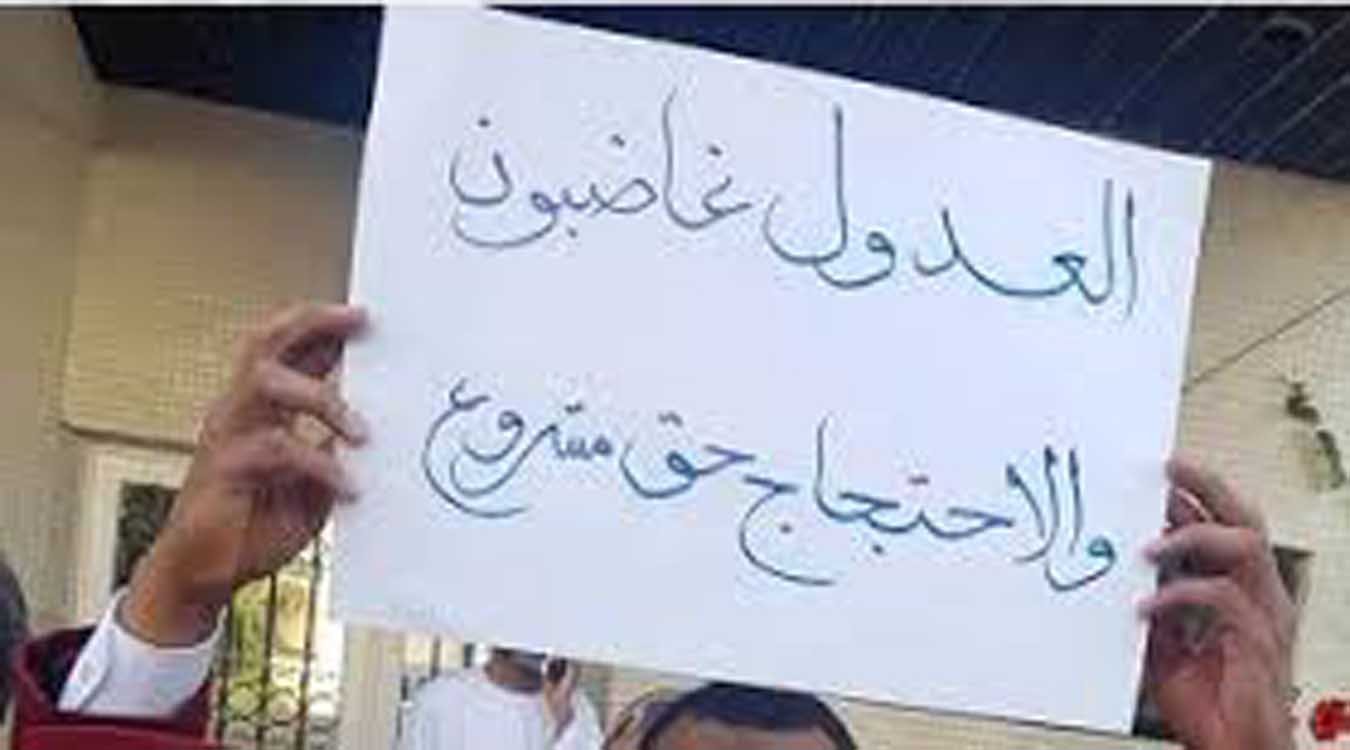 العدول غاضبون
والاحتجاج حق مشروع